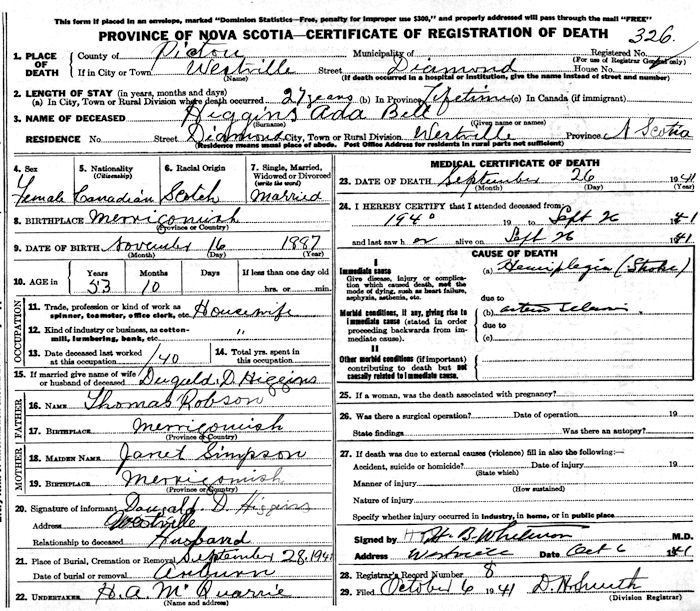 This form if placed in an envelope, marked "Dominion Statistics—Free, penalty for improper use $300," and properly addressed will pass through the mail "FREE"
PROVINCE OF NOVA SCOTIA—CERTIFICATE OF REGISTRATION OF DEATH 326
1. PLACE OF DEATH County of Pictou Municipality of Registered No.
(For use of Registrar General only)
If in City or Town Westville Street Diamond House No.
(If death occurred in a hospital or institution, give the name instead of street and number)
2. LENGTH OF STAY (in years, months and days)
(a) In City, Town or Rural Division where death occurred 27 years (b) In Province Lifetime (c) In Canada (if immigrant)
3. NAME OF DECEASED Higgins Ada Bell
(Surname) (Given name or names)
RESIDENCE No Street Diamond City, Town or Rural Division Westville Province N Scotia
(Residence means usual place of abode. Post Office Address for residents in rural parts not sufficient)
4. Sex 5. Nationality (Citizenship) 6. Racial Origin 7. Single, Married, Widowed or Divorced (write the word)
Female Canadian Scotch Married
8. BIRTHPLACE Merrigomish
(Province or Country)
9. DATE OF BIRTH November 16 1887
(Month) (Day) (Year)
10. AGE in Years Months Days If less than one day old
53 10 hrs. or min.
OCCUPATION
11. Trade, profession or kind of work as spinner, teamster, office clerk, etc. Housewife
12. Kind of industry or business, as cotton-mill, lumbering, bank, etc. "
13. Date deceased last worked at this occupation /40 14. Total yrs. spent in this occupation
15. If married give name of wife or husband of deceased Dugald. D. Higgins
FATHER
16. NAME Thomas Robson
17. BIRTHPLACE Merrigomish
(Province or Country)
MOTHER
18. MAIDEN NAME Janet Simpson
19. BIRTHPLACE Merrigomish
(Province or Country)
20. Signature of informant Dougald. D. Higgins
Address Westville
Relationship to deceased Husband
21. Place of Burial, Cremation or Removal September 28, 1941
Date of burial or removal Auburn
22. UNDERTAKER H. A. McQuarrie
(Name and address)
MEDICAL CERTIFICATE OF DEATH
23. DATE OF DEATH September 26 1941
(Month) (Day) (Year)
24. I HEREBY CERTIFY that I attended deceased from:
1940 19 to Sept 26 1941
and last saw h er alive on Sept 26 1941
CAUSE OF DEATH
I
Immediate cause (a) Hemiplegia (Stroke)
Give disease, injury or complication which caused death, not the mode of dying, such as heart failure, asphyxia, asthenia, etc.
due to
Morbid conditions, if any, giving rise to immediate cause (stated in order proceeding backwards from immediate cause). (b)
due to
(c)
II
Other morbid conditions (if important) contributing to death but not causally related to immediate cause.
25. If a woman, was the death associated with pregnancy?
26. Was there a surgical operation? Date of operation 19
State findings Was there an autopsy?
27. If death was due to external causes (violence) fill in also the following:—
Accident, suicide or homicide? Date of injury 19
(State which)
Manner of injury
(How sustained)
Nature of injury
Specify whether injury occurred in industry, in home, or in public place
Signed by H B Whitman M.D.
Address Westville Date Oct 6 1941
28. Registrar's Record Number 8
29. Filed October 6 1941 D. H. Smith
(Division Registrar)